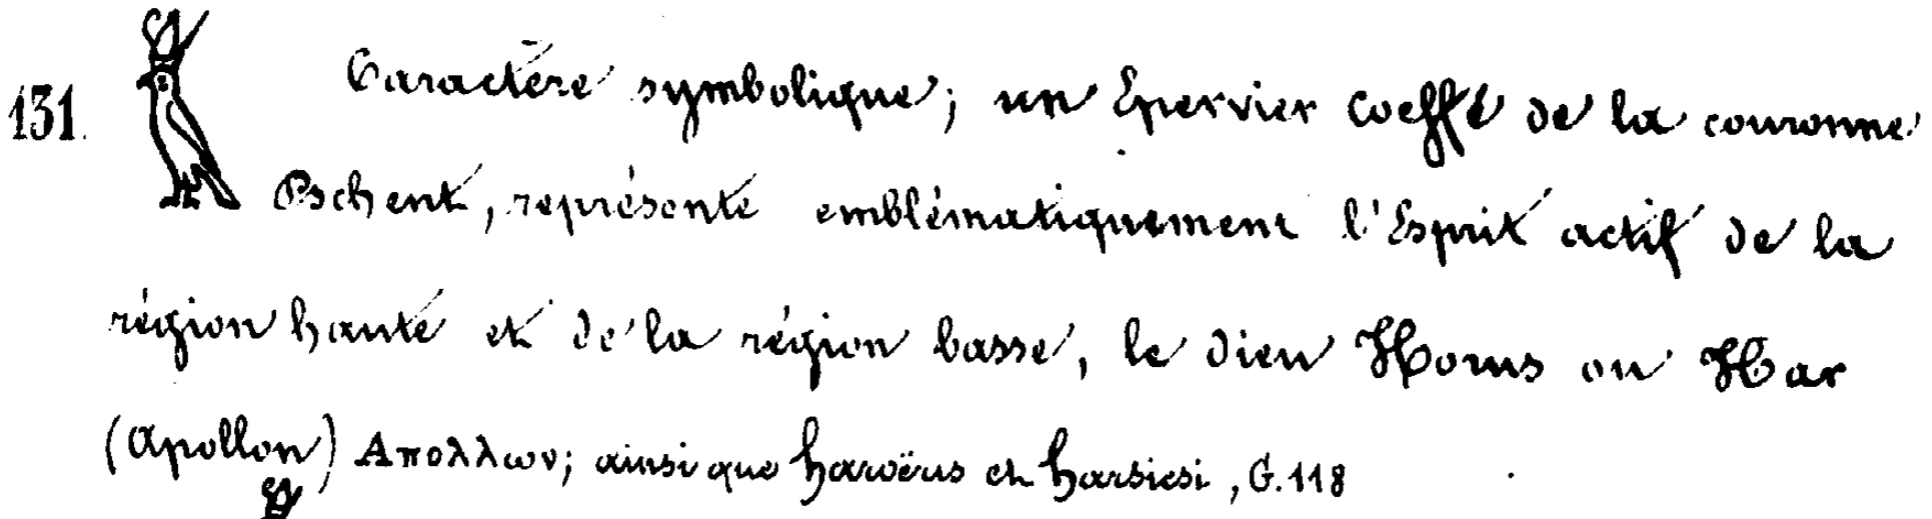 131. Caractère symbolique; un Épervier coeffé de la couronne
Pschent, représente emblématiquement l'Esprit actif de la
région haute et de la région basse, le dieu Horus ou Har
(Apollon) Απολλων; ainsi que haroëris et harsiesi, G. 118